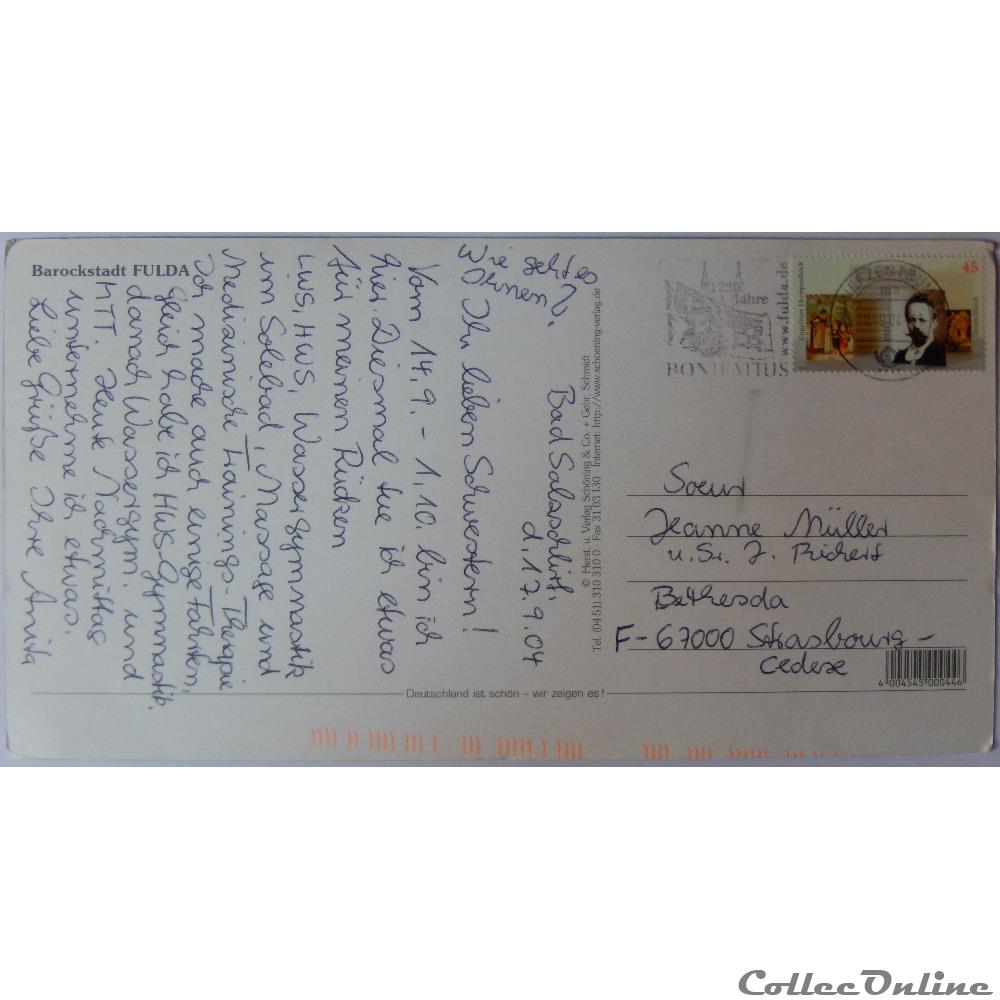 Barockstadt FULDA
Bad Salzschlirf,
d. 17.9.04
Ihr lieben Schwestern!
Wie geht es
Ihnen?
Vom 14.9. - 1.10. bin ich
hier. Diesmal tue ich etwas
für meinen Rücken
LWS, HWS, Wassergymnastik
im Solebad, Massage und
Medizinische Trainings-Therapie
Ich mache auch einige Fahrten.
Gleich habe ich HWS-Gymnastik,
danach Wassergym. und
MTT. Heute Nachmittag
unternehme ich etwas.
Liebe Grüße Ihre Anita
© Herst. u. Verlag Schöning & Co. + Gebr. Schmidt
Tel. (04 51) 310 310 0 · Fax 31 03 130 · Internet: http://www.schoening-verlag.de
1250
Jahre
BONIFATIUS
www.fulda.de
BRIEFZENTRUM
Engelbert Humperdinck
45
Deutschland
Soeur
Jeanne Müller
u. Sr. J. Richert
Bethesda
F-67000 Strasbourg-
Cedex
4 004545 000446
Deutschland ist schön – wir zeigen es!
CollecOnline